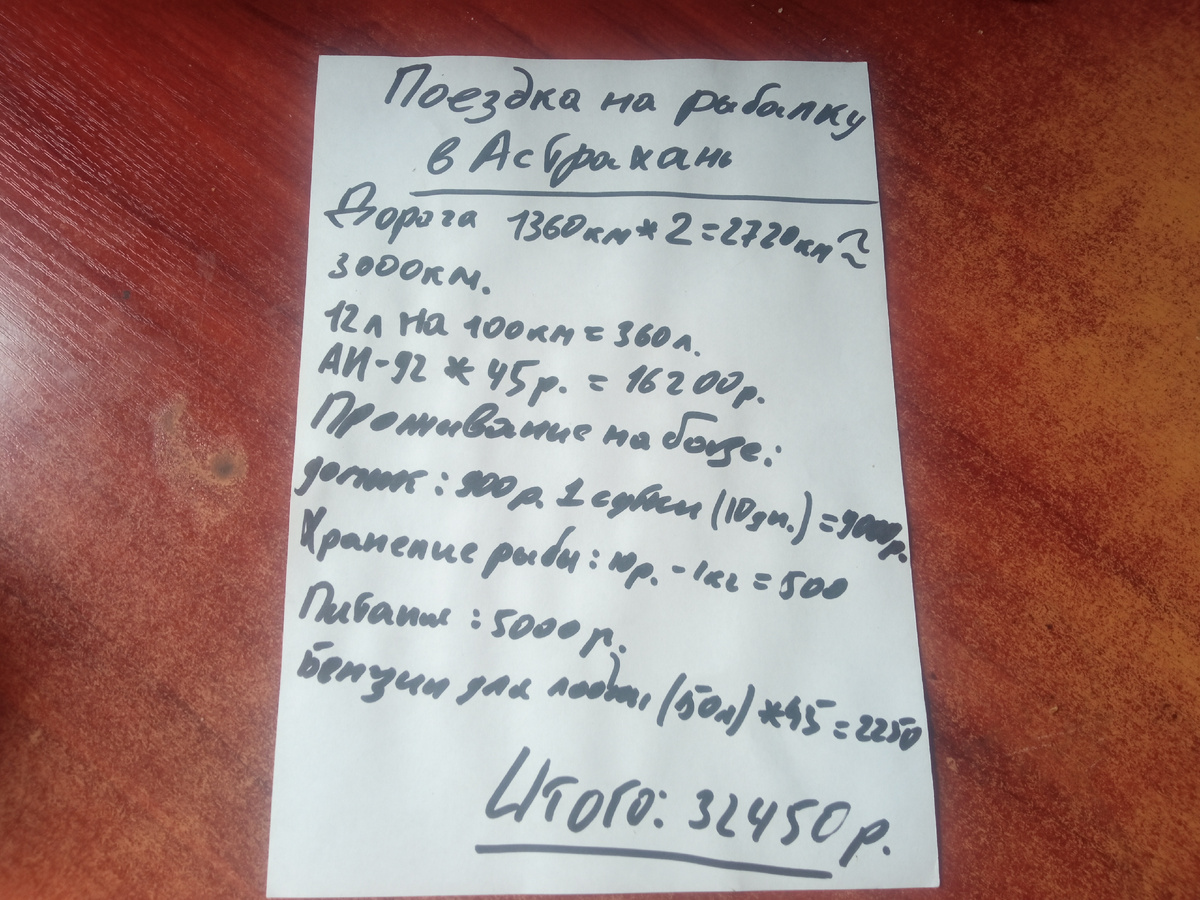 Поездка на рыбалку
в Астрахань
Дорога 1360км*2=2720км≈
3000км.
12л на 100км=360л.
АИ-92 * 45р. = 16200р.
Проживание на базе:
домик: 900р. 1 сутки (10дн.)=9000р.
Хранение рыбы: 10р. - 1кг = 500
Питание: 5000р.
Бензин для лодки (50л)*45=2250
Итого: 32450р.